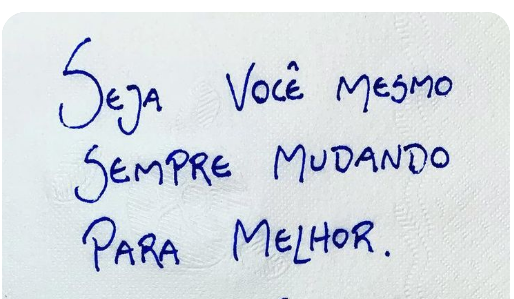 Seja Você mesmo
sempre mudando
para melhor.